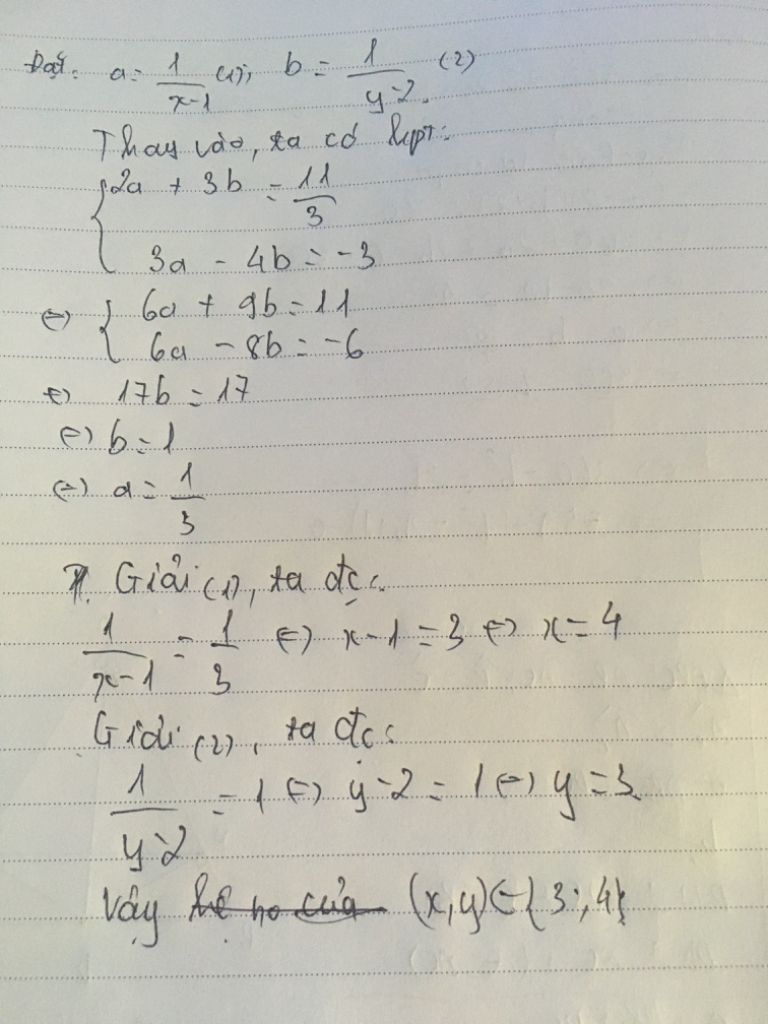 Đặt: a = 1/(x-1) (1); b = 1/(y-2) (2)
Thay vào, ta có hpt:
{ 2a + 3b = 11/3
3a - 4b = -3
⇔ { 6a + 9b = 11
6a - 8b = -6
⇔ 17b = 17
⇔ b = 1
⇔ a = 1/3
Giải (1), ta đc:
1/(x-1) = 1/3 ⇔ x-1 = 3 ⇔ x = 4
Giải (2), ta đc:
1/(y-2) = 1 ⇔ y-2 = 1 ⇔ y = 3
Vậy hệ no của (x,y) ∈ {3;4}